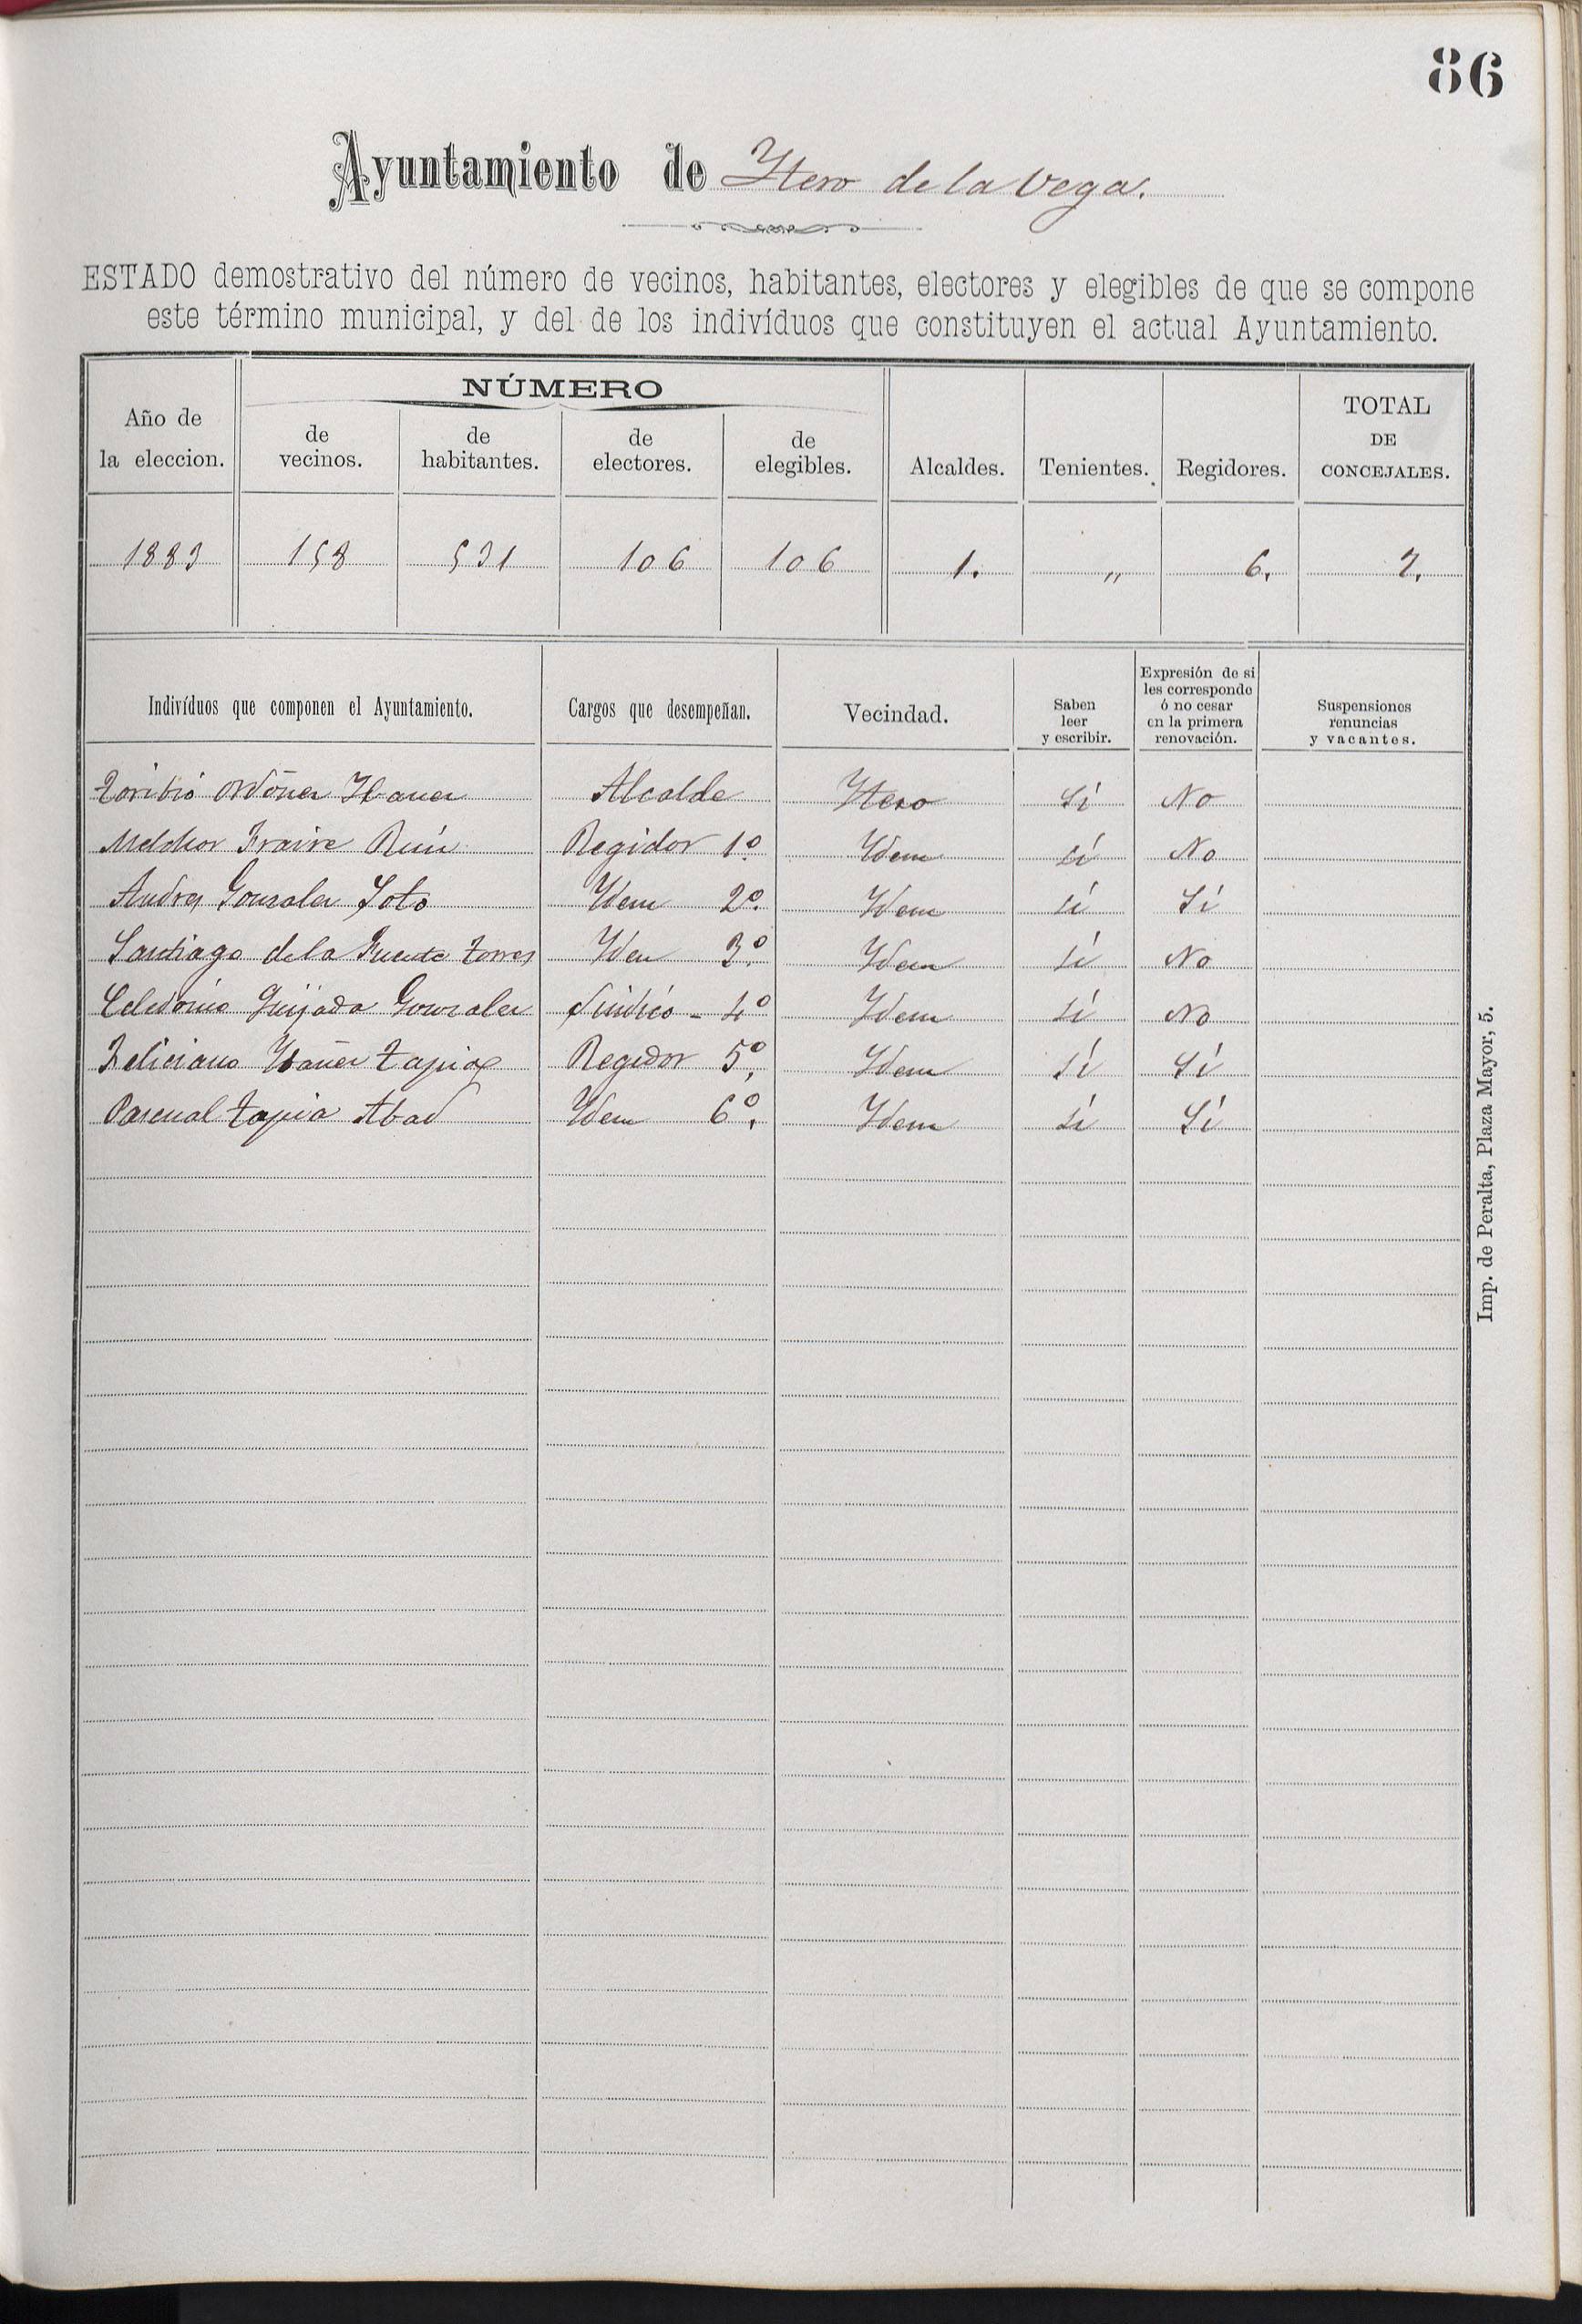 86
Ayuntamiento de Ytero de la Vega.
ESTADO demostrativo del número de vecinos, habitantes, electores y elegibles de que se compone
este término municipal, y del de los indivíduos que constituyen el actual Ayuntamiento.
Año de la eleccion. NÚMERO de vecinos. de habitantes. de electores. de elegibles. Alcaldes. Tenientes. Regidores. TOTAL DE CONCEJALES.
1883 158 531 106 106 1. " 6. 7.
Indivíduos que componen el Ayuntamiento. Cargos que desempeñan. Vecindad. Saben leer y escribir. Expresión de si les corresponde ó no cesar en la primera renovación. Suspensiones renuncias y vacantes.
Toribio Ordoñez Ybañez Alcalde Ytero Sí No
Melchor Fraire Ruiz Regidor 1º Ydem sí No
Andres Gonzalez Soto Ydem 2º. Ydem sí Sí
Santiago de la Fuente Torres Yden 3º. Ydem sí No
Celedonio Quijada Gonzalez Sindico - 4º Ydem sí No
Feliciano Ybañez Tapia Regidor 5º. Ydem sí Sí
Pascual Tapia Abad Ydem 6º. Ydem sí Sí
Imp. de Peralta, Plaza Mayor, 5.